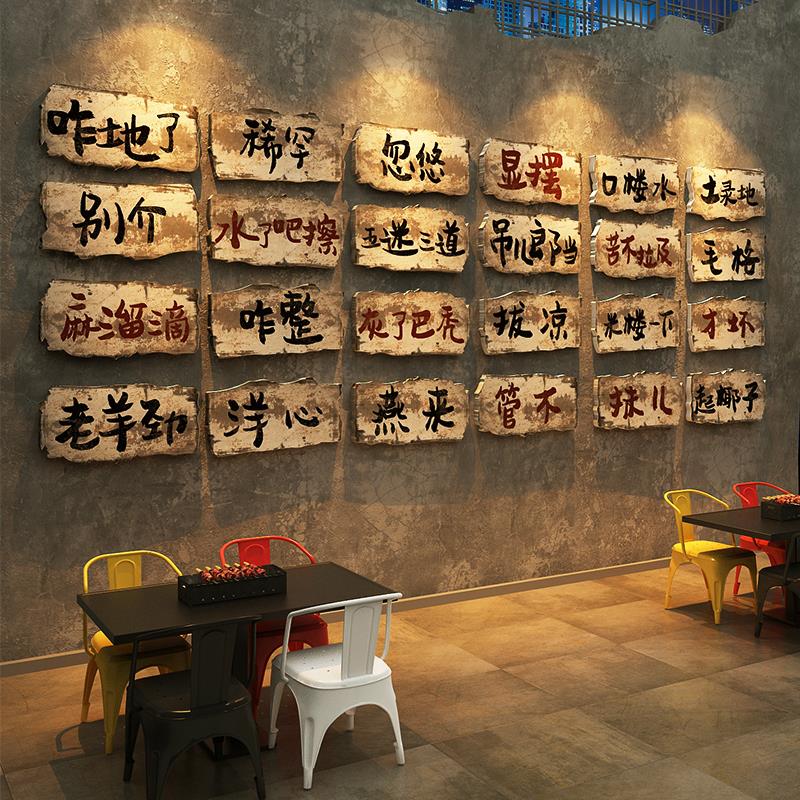 咋地了
稀罕
忽悠
显摆
口楼水
别介
水了吧擦
五迷三道
吊儿郎当
苦不拉及
毛格
麻溜滴
咋整
灰了巴秃
拔凉
米楼一下
才坏
老羊劲
洋心
燕来
管不
抹儿
起椰子